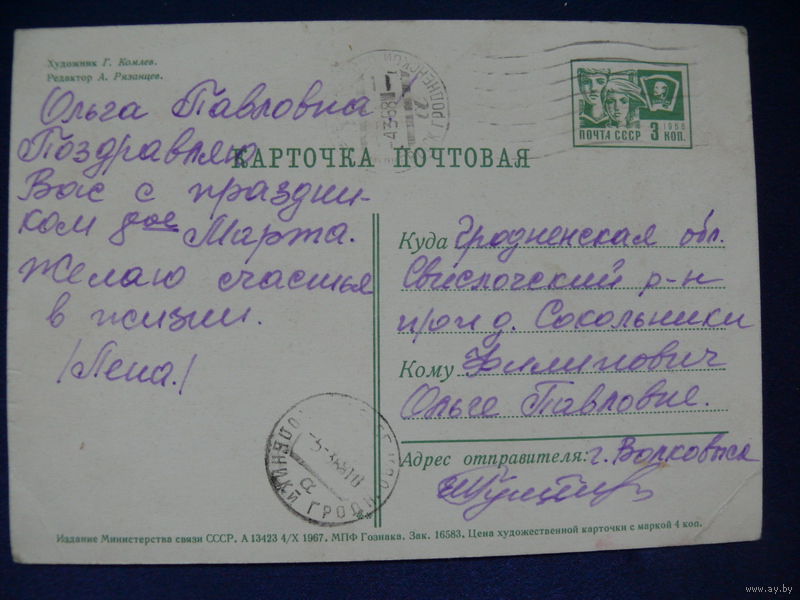 Художник Г. Комлев.
Редактор А. Рязанцев.
Ольга Павловна
Поздравляю
Вас с праздни-
ком 8ое Марта.
Желаю счастья
в жизни.
/Лена./
КАРТОЧКА ПОЧТОВАЯ
ПОЧТА СССР
1966
3 КОП.
Куда Гродненская обл.
Свислочский р-н
п/о и д. Сокольники
Кому Филипович
Ольге Павловне.
Адрес отправителя: г. Волковыск
Издание Министерства связи СССР. А 13423 4/X 1967. МПФ Гознака. Зак. 16583. Цена художественной карточки с маркой 4 коп.
www.ay.by